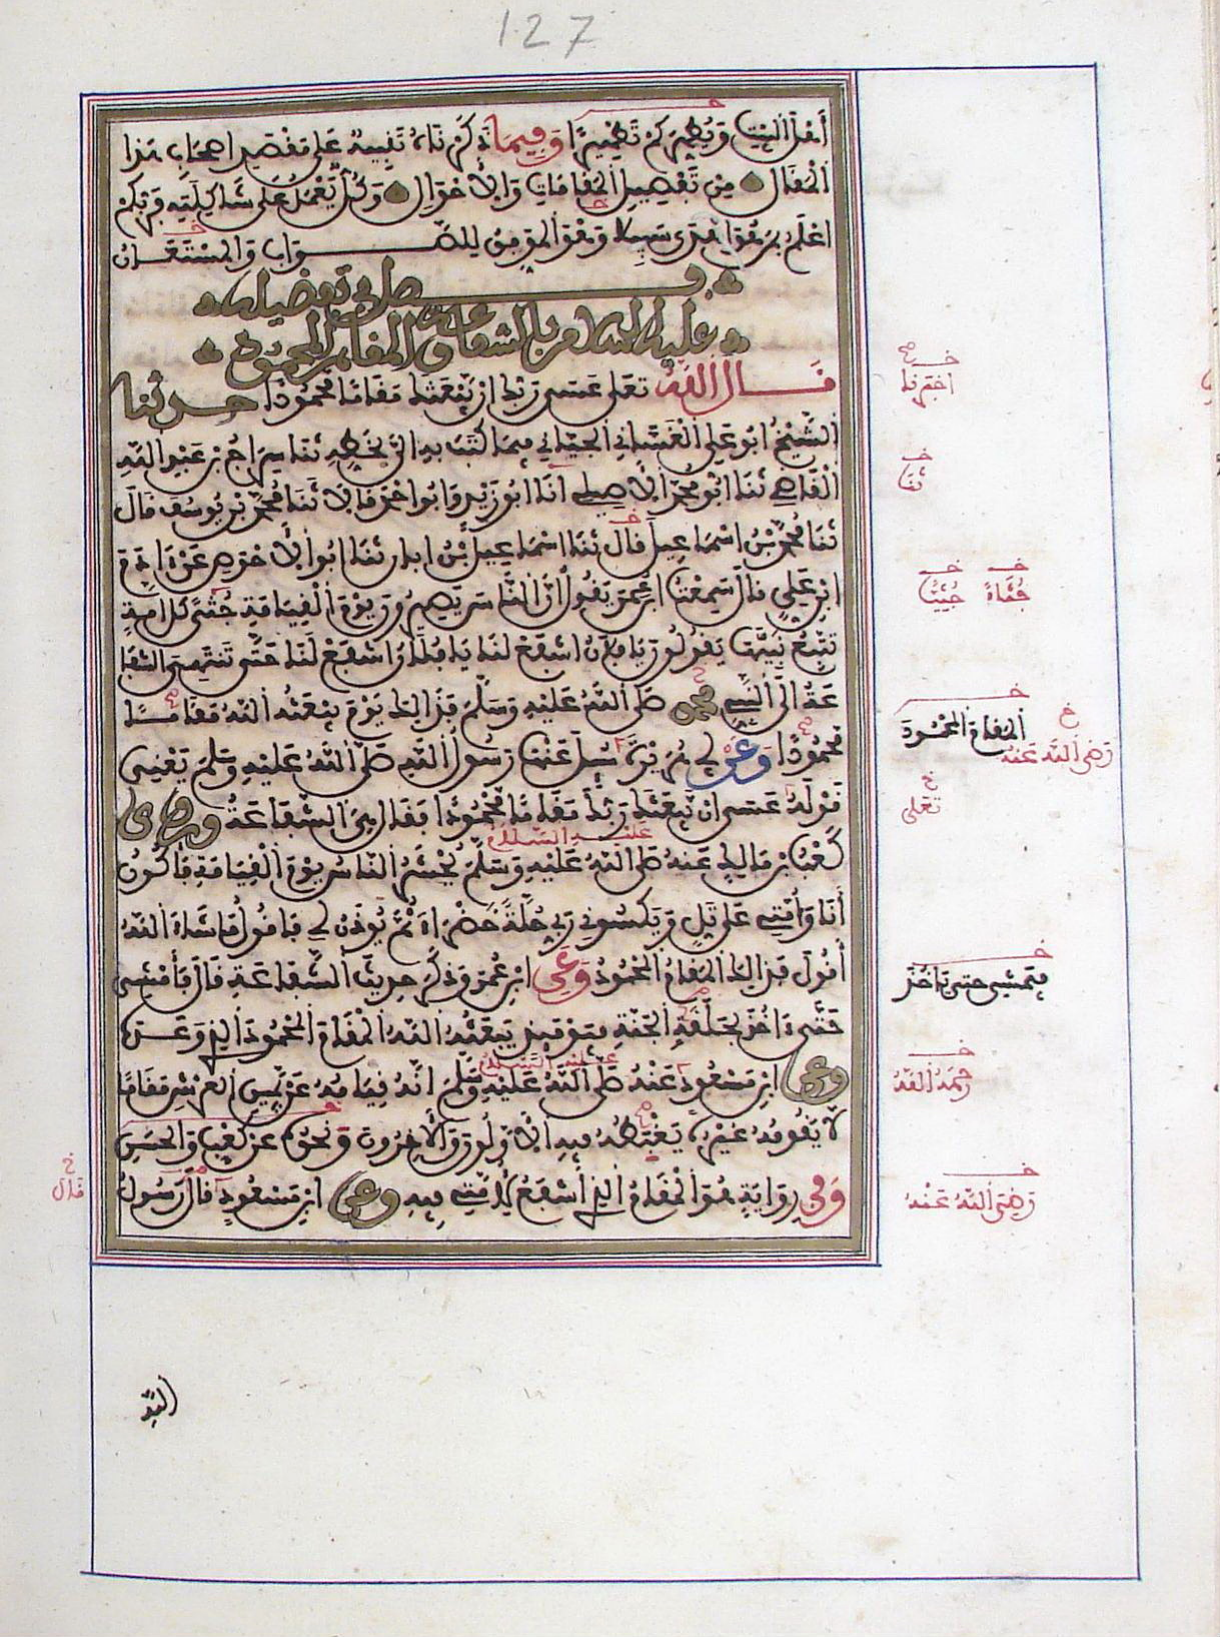 127
أهل البيت ويطهركم تطهيرا وفيما ذكرناه تنبيه على مقصد أصحاب هذا
المقال من تفضيل المقامات والأحوال وكل يعمل على شاكلته فربكم
أعلم بمن هو أهدى سبيلا وهو الموفق للصواب والمستعان
فصل في تفضيله
عليه السلام بالشفاعة والمقام المحمود
قال الله تعلى عسى ربك أن يبعثك مقاما محمودا حدثنا
الشيخ أبو علي الغساني الجياني فيما كتب به إلي بخطه ثنا سراج بن عبد الله
القاضي ثنا أبو محمد الأصيلي أنا أبو زيد وأبو أحمد قالا ثنا محمد بن يوسف قال
ثنا محمد بن إسماعيل قال ثنا إسماعيل بن أبان ثنا أبو الأحوص عن آدم
ابن علي قال سمعت ابن عمر يقول إن الناس يصيرون يوم القيامة جثى كل أمة
تتبع نبيها يقولون يا فلان اشفع لنا يا فلان اشفع لنا حتى تنتهي الشفا
عة إلى النبي محمد صلى الله عليه وسلم فذلك يوم يبعثه الله مقاما
محمودا وعن أبي هريرة سئل عنها رسول الله صلى الله عليه وسلم يعني
قوله عسى أن يبعثك ربك مقاما محمودا فقال هي الشفاعة وروى
كعب بن مالك عنه صلى الله عليه وسلم يحشر الناس يوم القيامة فأكون
عليه السلام
أنا وأمتي على تل ويكسوني ربي حلة خضراء ثم يوذن لي فأقول ما شاء الله
أقول فذلك المقام المحمود وعن ابن عمر وذكر حديث الشفاعة قال فأمشي
حتى آخذ بحلقة الجنة فيومئذ يبعثه الله المقام المحمود الذي وعده
وعن ابن مسعود عنه صلى الله عليه وسلم أنه قيامه عن يمين العرش مقاما
عليه السلام
لا يقومه غيره يغبطه فيه الأولون والآخرون ونحوه عن كعب والحسن
وفي رواية هو المقام الذي أشفع لأمتي فيه وعن ابن مسعود قال رسول
الله
أخبرنا
ثنا
جثاة جثيا
المقام المحمود
رضي الله عنه
تعلى
فيمشي حتى يأخذ
رحمه الله
رضي الله عنه
قال